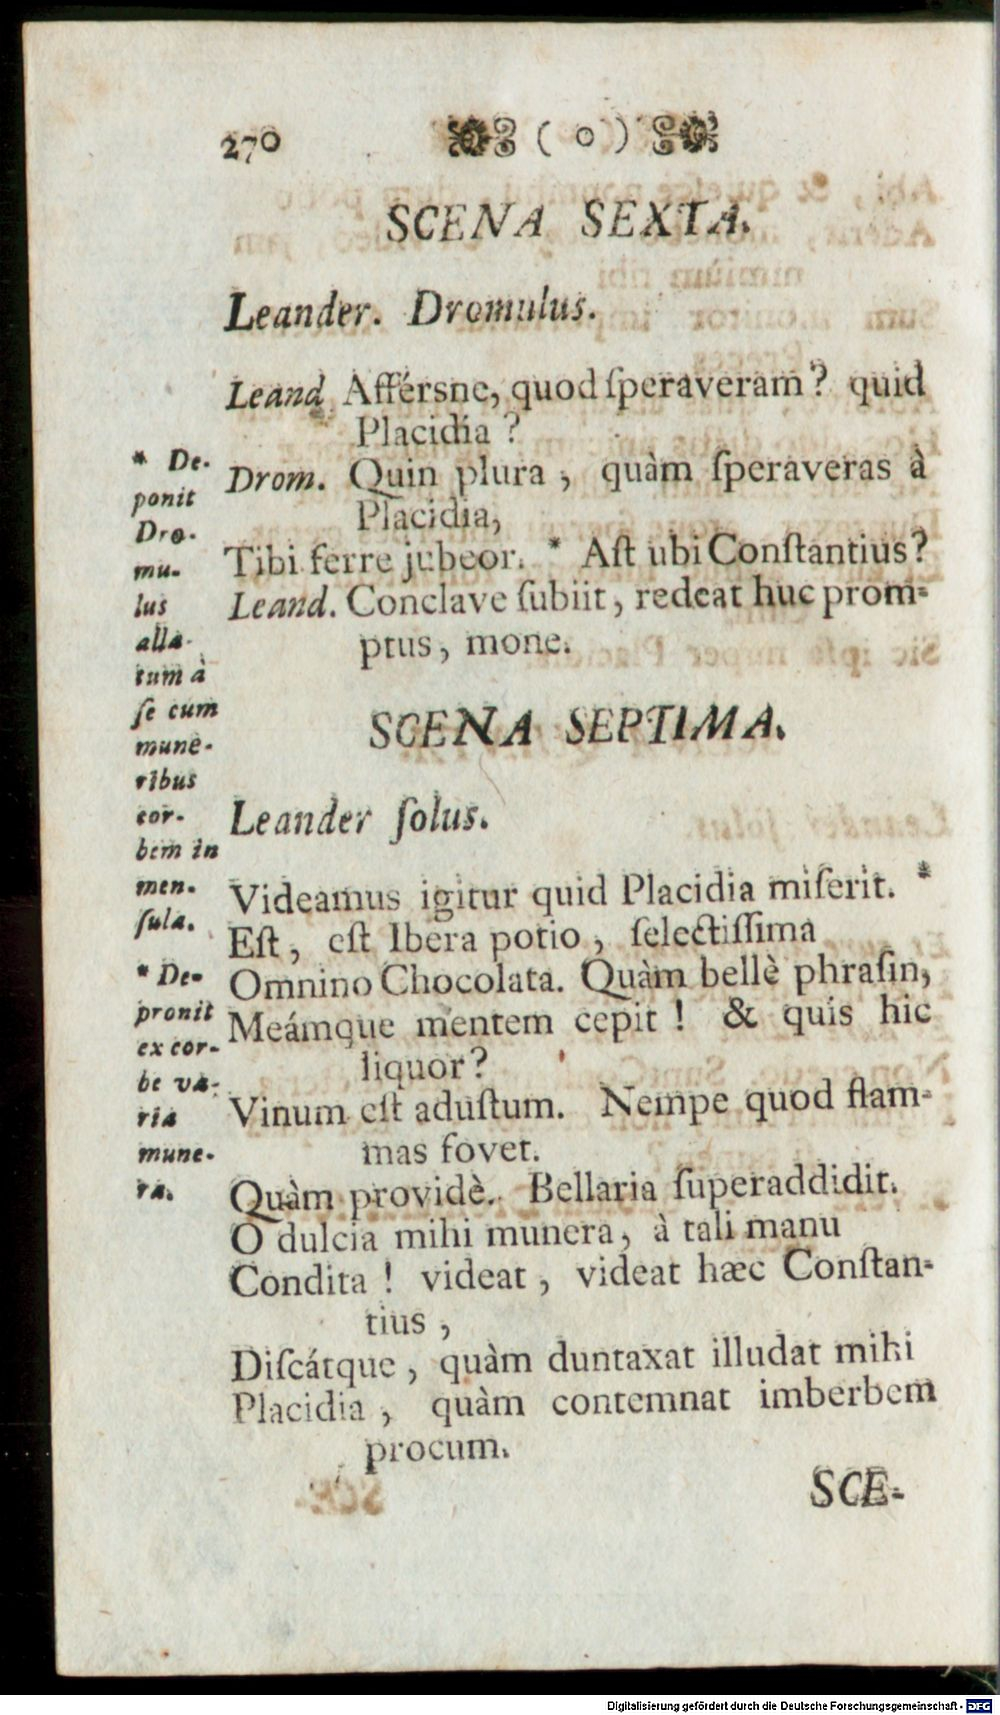 270 ( o )
SCENA SEXTA.
Leander. Dromulus.
Leand. Affërsne, quod ſperaveram? quid
Placidia?
Drom. Quin plura, quàm ſperaveras à
Placidia,
Tibi ferre jubeor. * Aſt ubi Conſtantius?
Leand. Conclave ſubiit, redeat huc prom-
ptus, mone.
* De-
ponit
Dro-
mu-
lus
alla-
tum à
ſe cum
mune-
ribus
cor-
bem in
men-
ſula.
SCENA SEPTIMA.
Leander ſolus.
Videamus igitur quid Placidia miſerit. *
Eſt, eſt Ibera potio, ſelectiſſima
Omnino Chocolata. Quàm bellè phraſin,
Meámque mentem cepit! & quis hic
liquor?
Vinum eſt aduſtum. Nempe quod flam-
mas fovet.
Quàm providè. Bellaria ſuperaddidit.
O dulcia mihi munera, à tali manu
Condita! videat, videat hæc Conſtan-
tius,
Diſcátque, quàm duntaxat illudat mihi
Placidia, quàm contemnat imberbem
procum.
* De-
pronit
ex cor-
be va-
ria
mune-
ra.
SCE-
Digitalisierung gefördert durch die Deutsche Forschungsgemeinschaft - DFG